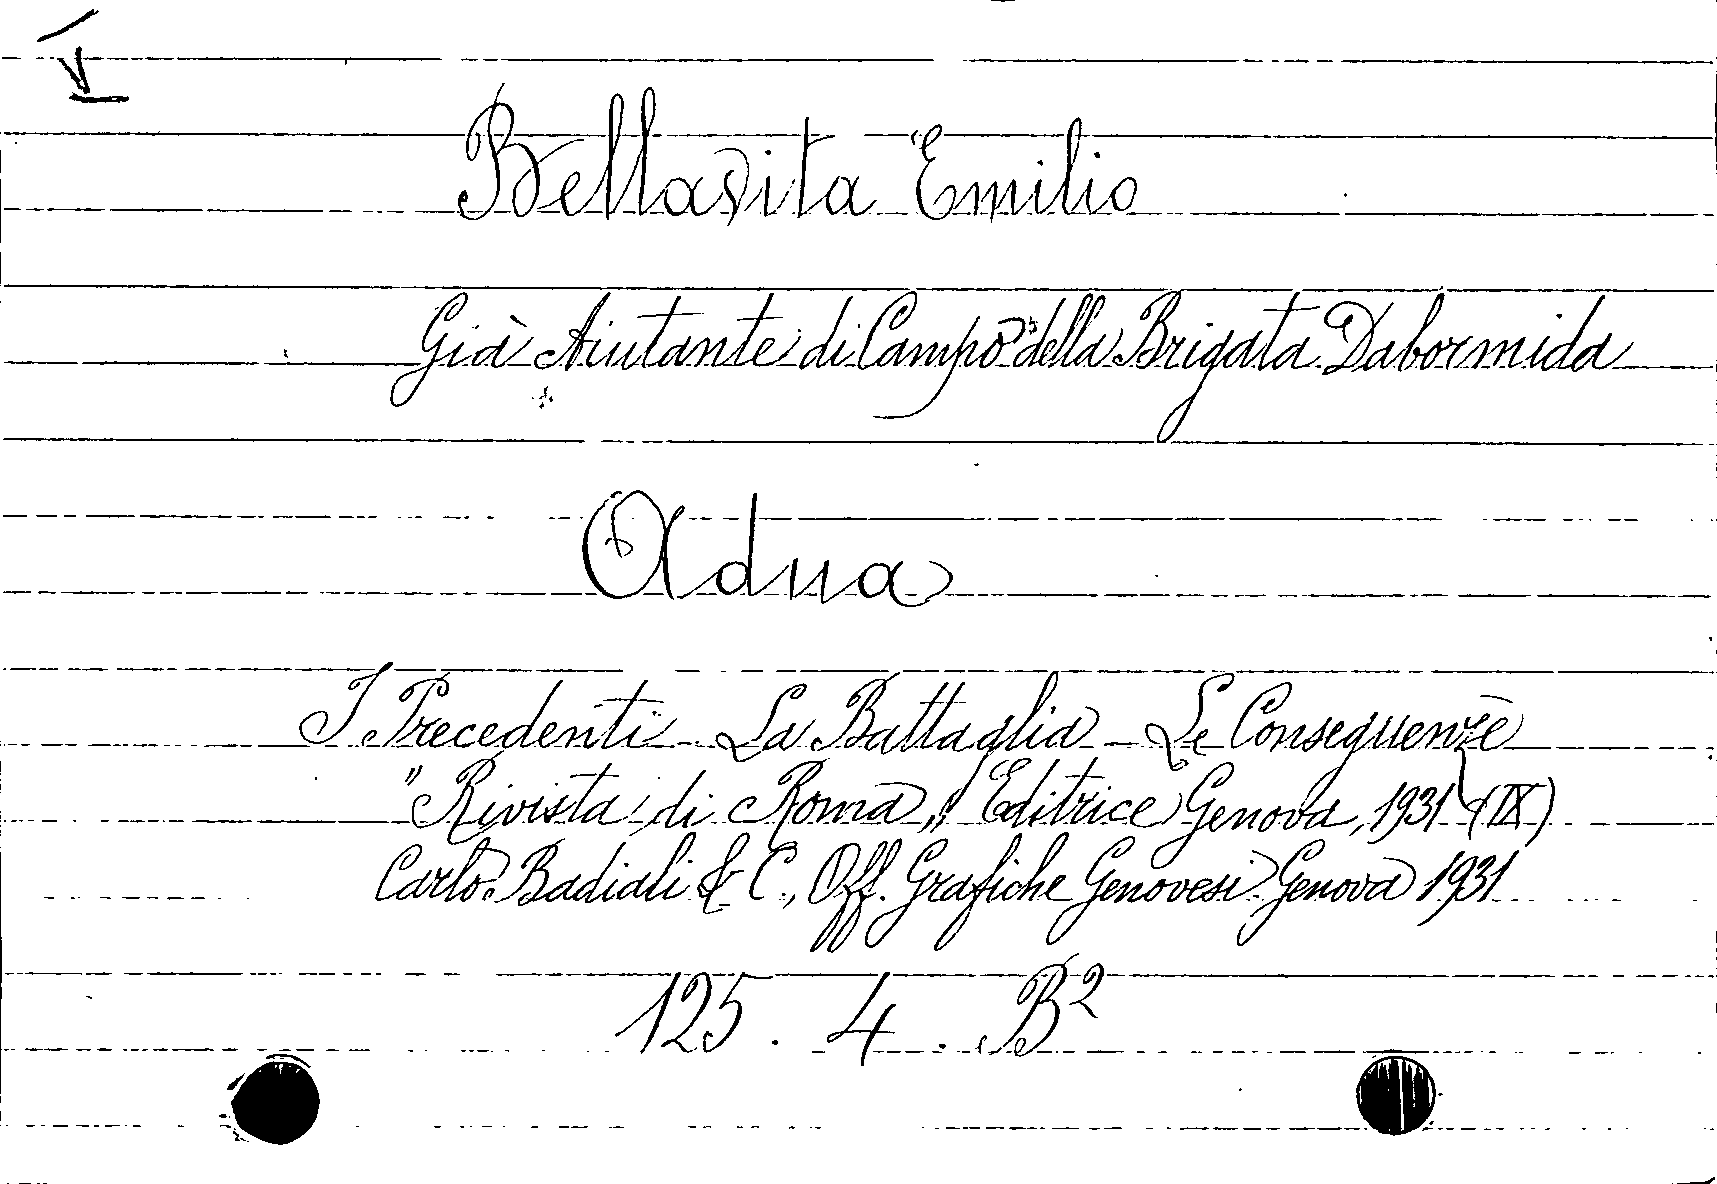 Bellavita Emilio
Già Aiutante di Campo della Brigata Dabormida
Adua
I Precedenti - La Battaglia - Le Conseguenze
"Rivista di Roma„ Editrice Genova, 1931 (IX)
Carlo Badiali & C., Off. Grafiche Genovesi - Genova 1931
125. 4. B²